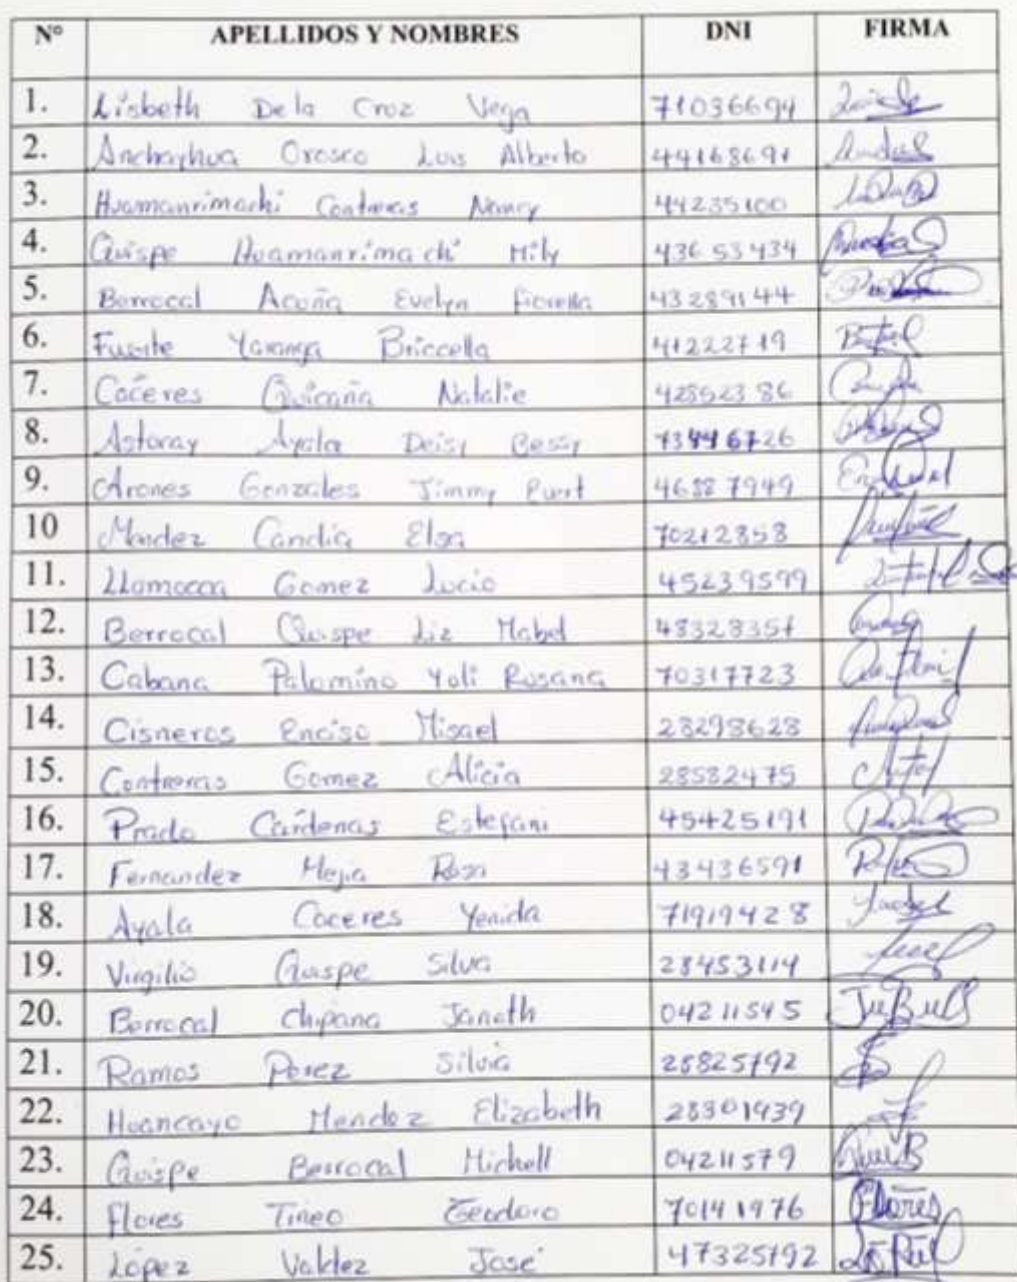 N° APELLIDOS Y NOMBRES DNI FIRMA
1. Lisbeth De la Croz Vega 71036694
2. Anchayhua Orosco Luis Alberto 44168691
3. Huamanrimachi Contreras Nancy 44235100
4. Quispe Huamanrimachi Mily 43653434
5. Berrocal Acuña Evelyn Fiorella 43289144
6. Fuente Yaranga Briccella 41222719
7. Caceres Quicaña Natalie 42852386
8. Astoray Ayala Deisy Bessy 73446726
9. Arones Gonzales Jimmy 46887949
10 Mendez Candia Elsa 70212858
11. Llamocca Gomez Lucio 45239599
12. Berrocal Quispe Liz Mabel 48328351
13. Cabana Palomino Yoli Rosana 70317723
14. Cisneros Enciso Misael 28298628
15. Contreras Gomez Alicia 28582475
16. Prado Cardenas Estefani 45425191
17. Fernandez Mejia Rosa 43436591
18. Ayala Caceres Yenida 71919428
19. Virgilio Quispe Silva 28453114
20. Berrocal Chipana Janeth 04211545
21. Ramos Perez Silvia 28825192
22. Huancayo Mendez Elizabeth 28301939
23. Quispe Berrocal Michell 04211579
24. Flores Tineo Teodoro 70141976 Flores
25. López Valdez José 47325192